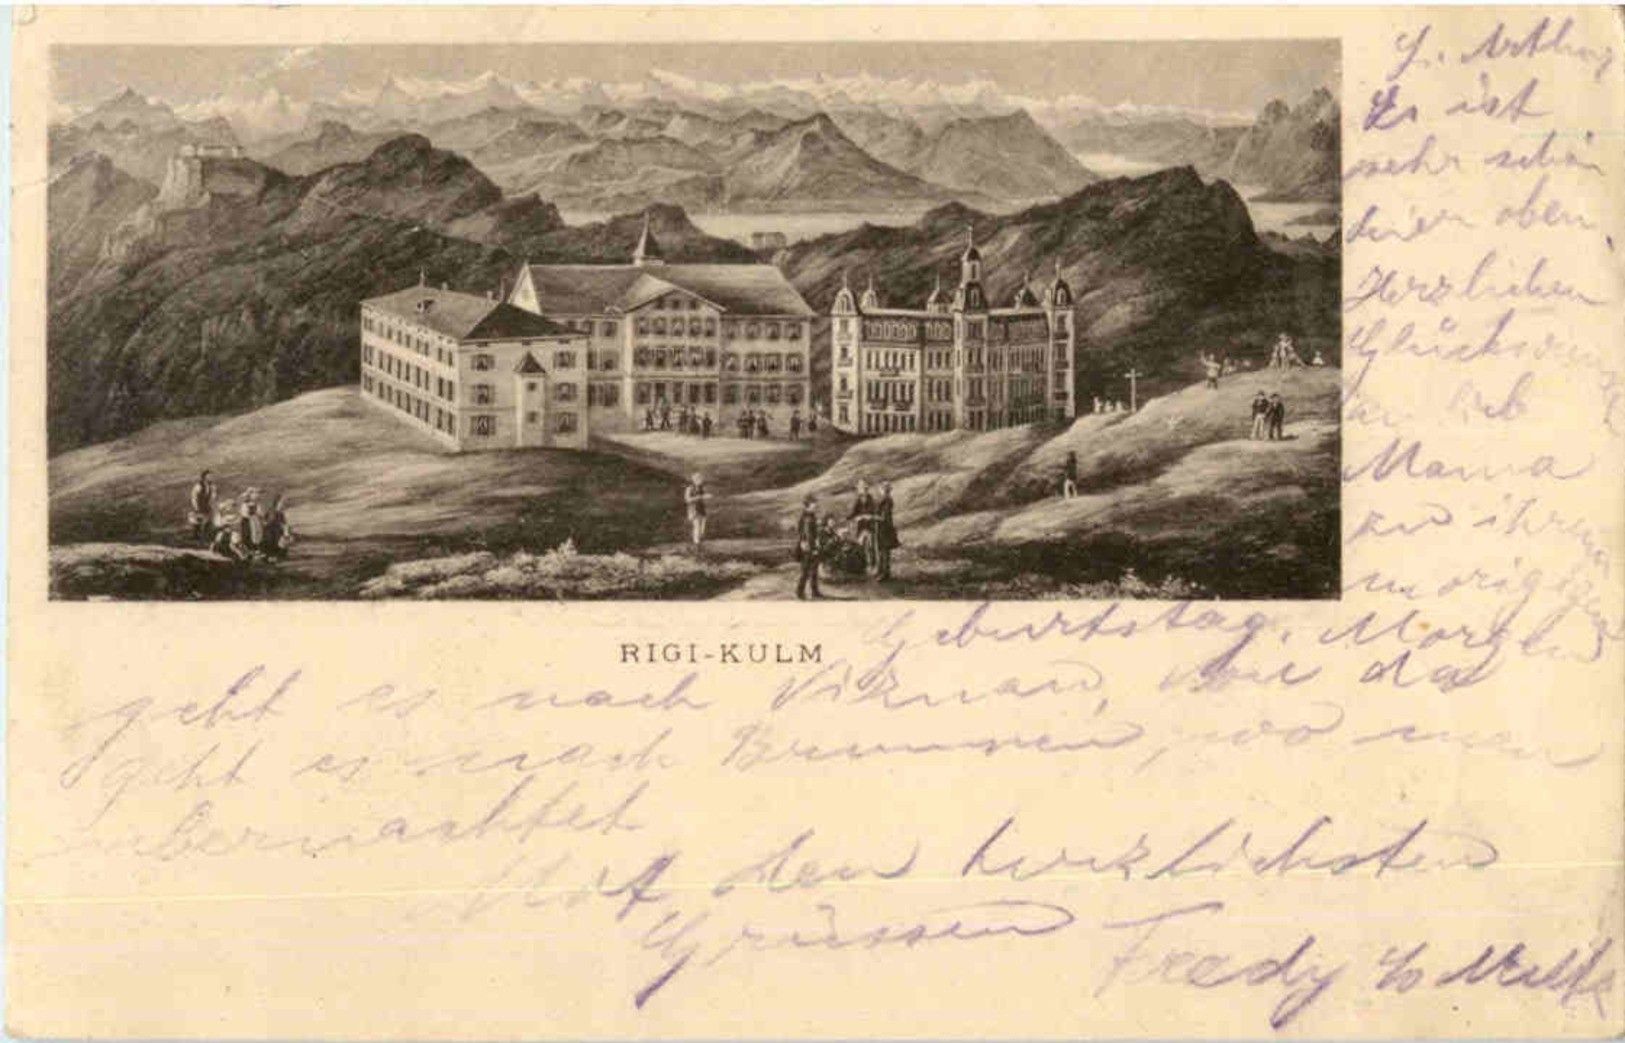 RIGI-KULM
L. Arthur
Es ist
sehr schön
hier oben
Herzlichen
Glückwunsch
an lieb
Mama
zu ihrem
morgigen
Geburtstag. Morgen
geht es nach Vitznau, von da
geht es nach Brunnen, wo man
übernachtet
Mit den herzlichsten
Grüssen
Fredy